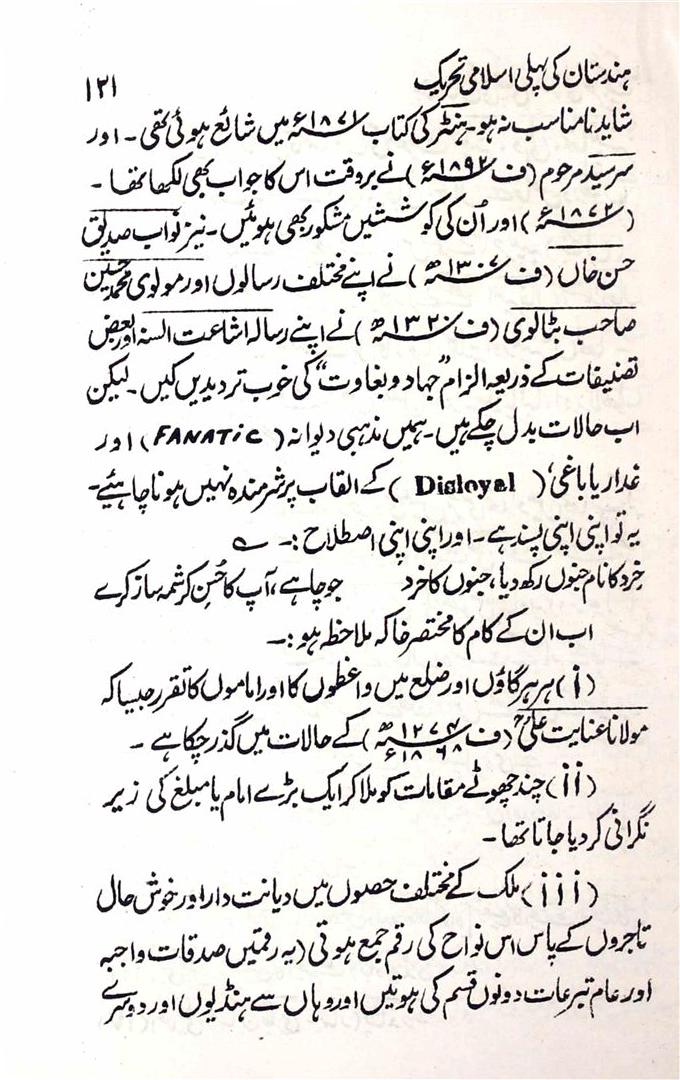 ہندستان کی پہلی اسلامی تحریک ۱۲۱
شاید نامناسب نہ ہو۔ ہنٹر کی کتاب ۱۸۷۱ء میں شائع ہوئی تھی۔ اور
سرسید مرحوم (ف ۱۸۹۲ء) نے بروقت اس کا جواب بھی لکھا تھا۔
(۱۸۷۲ء) اور اُن کی کوششیں مشکور بھی ہوئیں۔ نیز نواب صدیق
حسن خاں (ف ۱۳۰۷ھ) نے اپنے مختلف رسالوں اور مولوی محمد حسین
صاحب بٹالوی (ف ۱۳۲۰ھ) نے اپنے رسالہ اشاعت السنہ اور بعض
تصنیفات کے ذریعہ الزام "جہاد و بغاوت" کی خوب تردیدیں کیں۔ لیکن
اب حالات بدل چکے ہیں۔ ہمیں مذہبی دیوانہ (FANATIC) اور
غدار یا باغی، (Disloyal) کے القاب پر شرمندہ نہیں ہونا چاہیئے۔
یہ تو اپنی اپنی پسند ہے۔ اور اپنی اپنی اصطلاح :۔ ؎
خرد کا نام جنوں رکھ دیا، جنوں کا خرد جو چاہے، آپ کا حُسنِ کرشمہ ساز کرے
اب ان کے کام کا مختصر خاکہ ملاحظہ ہو :۔
(i) ہر ہر گاؤں اور ضلع میں واعظوں کا اور اماموں کا تقرر جیسا کہ
مولانا عنایت علیؒ (ف ۱۲۷۴ھ ۱۸۶۸ء) کے حالات میں گذر چکا ہے۔
(ii) چند چھوٹے مقامات کو ملا کر ایک بڑے امام یا مبلغ کی زیر
نگرانی کر دیا جاتا تھا۔
(iii) ملک کے مختلف حصوں میں دیانت دار اور خوش حال
تاجروں کے پاس اس نواح کی رقم جمع ہوتی (یہ رقمتیں صدقات واجبہ
اور عام تبرعات دونوں قسم کی ہوتیں اور وہاں سے ہنڈیوں اور دوسرے